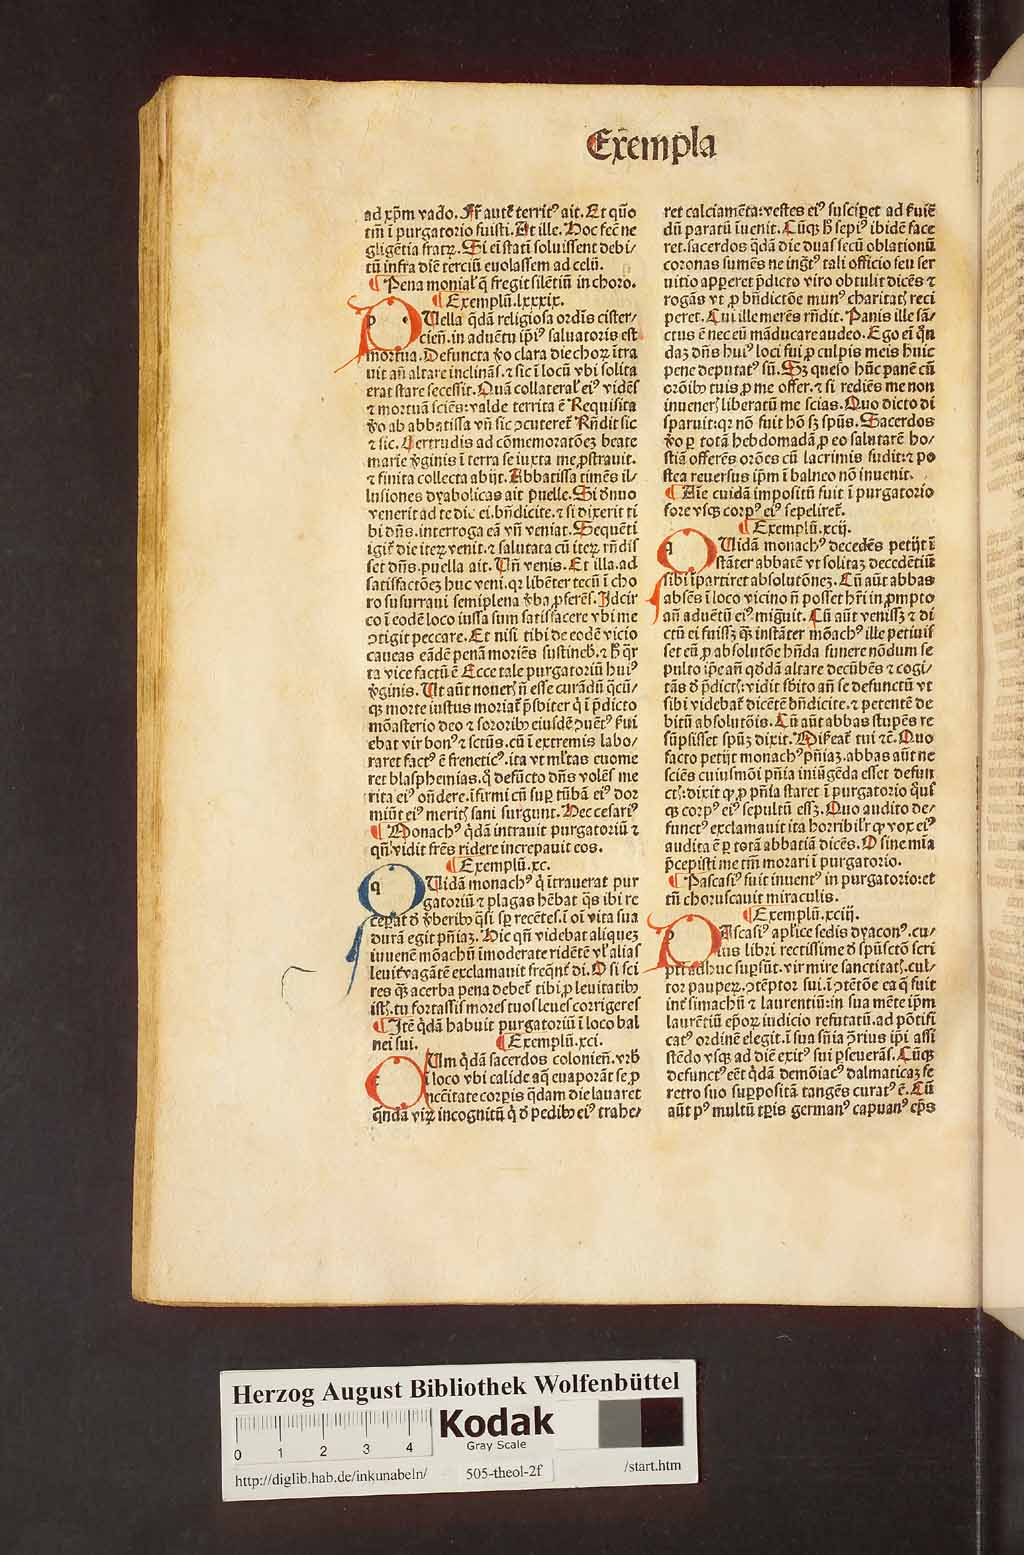 Exempla
ad xp̄m vado. Fr̄ autē territꝰ ait. Et quō
tm̄ ī purgatorio fuisti. At ille. Hoc fec̄ ne
gligētia fratꝝ. Si ei statī soluissent debi/
tū infra diē terciū euolassem ad celū.
¶ Pena monial̓ q̄ fregit silētiū in choro.
¶ Exemplū. lxxxix.
PUella q̄dā religiosa ordīs cister/
cien̄. in aduētu ip̄iꝰ saluatoris est
mortua. Defuncta ꝟo clara die choꝝ ītra
uit an̄ altare inclinās. ⁊ sic ī locū vbi solita
erat stare secessit. Quā collateral̓ eiꝰ vidēs
⁊ mortuā sciēs: valde territa ē Requisita
ꝟo ab abbatissa vn̄ sic ꝯcuteret᷑ Rn̄dit sic
⁊ sic. Gertrudis ad cōmemoratōeꝫ beate
marie ꝟginis ī terra se iuxta me ꝓstrauit.
⁊ finita collecta abijt. Abbatissa timēs il/
lusiones dyabolicas ait puelle. Si denuo
venerit ad te dic ei. bn̄dicite. ⁊ si dixerit ti
bi dn̄s. interroga eā vn̄ veniat. Sequēti
igit᷑ die iteꝝ venit. ⁊ salutata cū iteꝝ rn̄dis
set dn̄s. puella ait. Vn̄ venis. Et illa. ad
satisfactōeꝫ huc veni. qꝛ libēter tecū ī cho
ro susurraui semiplena ꝟba ꝓferēs. Idcir
co ī eodē loco iussa sum satisfacere vbi me
ꝯtigit peccare. Et nisi tibi de eodē vicio
caueas eādē penā moriēs sustineb̄. ⁊ h̄ q̄r
ta vice factū ē Ecce tale purgatoriū huiꝰ
ꝟginis. Ut aūt nouer̄ n̄ esse curādū q̄cū/
qꝫ morte iustus moriat᷑ p̄sbiter q̇ ī p̄dicto
mōasterio deo ⁊ sororibꝰ eiusdē ꝯuētꝰ ẜui
ebat vir bonꝰ ⁊ sctūs. cū ī extremis labo/
raret factꝰ ē freneticꝰ. ita vt ml̓tas euome
ret blasphemias. q̇ defūcto dn̄s volēs me
rita eiꝰ on̄dere. īfirmi cū sup̱ tūbā eiꝰ dor
miūt eiꝰ merit̄ sani surgunt. Hec cesariꝰ
¶ Monachꝰ q̇dā intrauit purgatoriū ⁊
qn̄ vidit frēs ridere increpauit eos.
¶ Exemplū. xc.
QUidā monachꝰ q̇ ītrauerat pur
gatoriū ⁊ plagas hēbat q̄s ibi re
ceperat de ꝟberibꝰ q̄si sp̱ recētes. ī oī vita sua
durā egit pn̄iaꝫ. Hic qn̄ videbat aliqueꝫ
iuuenē mōachū īmoderate ridētē vl̓ alias
leuit᷑ vagātē exclamauit freq̄nt᷑ di. O si sci
res q̄ꝫ acerba pena debet᷑ tibi ꝓ leuitatibꝰ
ist̄. tu fortassis mores tuos leues corrigeres
¶ Itē q̇dā habuit purgatoriū ī loco bal
nei sui.
¶ Exemplū. xci.
CUm q̇dā sacerdos colonien̄. vrb̄
ī loco vbi calide aq̄ euaporāt se ꝓ
incēitate corꝑis q̄dam die lauaret
q̄ndā viꝝ incognitū q̇ de pedibꝰ eiꝰ trahe/
ret calciamēta: vestes eiꝰ susciꝑet ad ẜuiē
dū paratū īuenit. Cūqꝫ h̄ sepiꝰ ibidē face
ret. sacerdos q̇dā die duas secū oblationū
coronas sumēs ne ingr̄tꝰ tali officio seu ser
uitio apꝑeret p̄dicto viro obtulit dicēs ⁊
rogās vt ꝓ bn̄dictōe munꝰ charitat̄ reci
peret. Cui ille merēs rn̄dit. Panis ille sā/
ctus ē nec eū māducare audeo. Ego ei q̄n
daꝫ dn̄s huiꝰ loci fui ꝓ culpis meis huic
pene deputatꝰ sū. Sꝫ queso hūc panē cū
orōibꝰ tuis ꝓ me offer. ⁊ si rediēs me non
inuener̄ liberatū me scias. Quo dicto di
sparuit: qꝛ nō fuit hō sꝫ spūs. Sacerdos
ꝟo ꝑ totā hebdomadā ꝓ eo salutarē ho/
stiā offerēs orōes cū lacrimis fudit: ⁊ po
stea reuersus ip̄m ī balneo nō inuenit.
¶ Die cuidā impositū fuit ī purgatorio
fore vsqꝫ corpꝰ eiꝰ sepeliret᷑.
¶ Exemplū. xcij.
QUidā monachꝰ decedēs petijt ī
stāter abbatē vt solitaꝫ decedētiū
sibi īpartiret absolutōneꝫ. Cū aūt abbas
absēs ī loco vicino n̄ posset hr̄i in ꝓmpto
an̄ aduētū eiꝰ migᷓuit. Cū aūt venissꝫ ⁊ di
ctū ei fuissꝫ q̄ꝫ instāter mōachꝰ ille petiuis
set eū ꝓ absolutōe hn̄da funere nōdum se
pulto ip̄e an̄ qd̓dā altare decūbēs ⁊ cogi/
tās de p̄dict̄: vidit sb̓ito an̄ se defunctū vt
sibi videbat᷑ dicētē bn̄dicite. ⁊ petentē de
bitū absolutōis. Cū aūt abbas stupēs re
sūpsisset spūꝫ dixit. Misereat᷑ tui ⁊c̄. Quo
facto petijt monachꝰ pn̄iaꝫ. abbas aūt ne
sciēs cuiusmōi pn̄ia iniūgēda esset defun
ct̄: dixit qꝙ ꝓ pn̄ia staret ī purgatorio q̇usqꝫ
corpꝰ eiꝰ sepultū essꝫ. Quo audito de/
functꝰ exclamauit ita horribilr̓ qꝙ vox eiꝰ
audita ē ꝑ totā abbatiā dicēs. O sine mīa
p̄cepisti me tm̄ morari ī purgatorio.
¶ Pascasiꝰ fuit inuentꝰ in purgatorio: et
tn̄ choruscauit miraculis.
¶ Exemplū. xciij.
PAscasiꝰ apl̓ice sedis dyaconꝰ. cu/
ius libri rectissime de spūscto scri
pti adhuc suꝑsūt. vir mire sanctitat̄. cul/
tor pauꝑeꝝ. ꝯtēptor sui. ī ꝯtētōe ea q̄ fuit
int᷑ simachū ⁊ laurentiū: in sua mēte ip̄m
laurētiū ep̄oꝝ iudicio refutatū. ad pōtifi
catꝰ ordinē elegit. ī sua sn̄ia ꝓrius ip̄i assi
stēdo vsqꝫ ad diē exitꝰ sui ꝑseuerās. Cūqꝫ
defunctꝰ eēt q̇dā demōiacꝰ dalmaticaꝫ fe
retro suo suꝑpositā tangēs curatꝰ ē. Cū
aūt pꝰ multū tꝑis germanꝰ capuanꝰ ep̄s
Herzog August Bibliothek Wolfenbüttel
0 1 2 3 4
Kodak
Gray Scale
http://diglib.hab.de/inkunabeln/
505-theol-2f
/start.htm